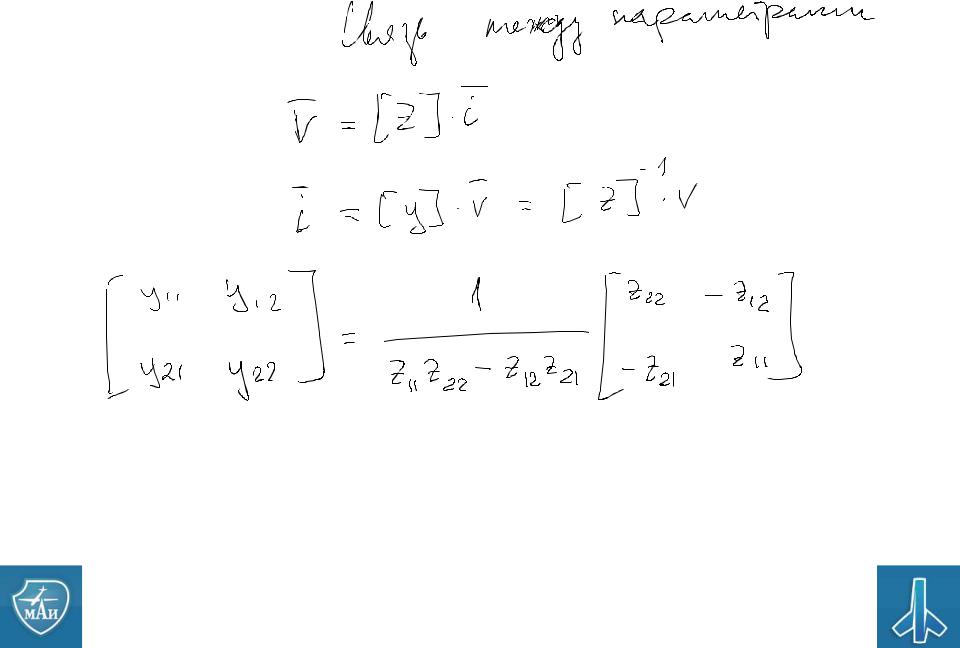 Связь между параметрами
V̅ = [Z] · i̅
i̅ = [y] · v̅ = [z]⁻¹ · v
[y₁₁ y₁₂ y₂₁ y₂₂] = 1 / (z₁₁z₂₂ − z₁₂z₂₁) [z₂₂ −z₁₂ −z₂₁ z₁₁]
МАИ